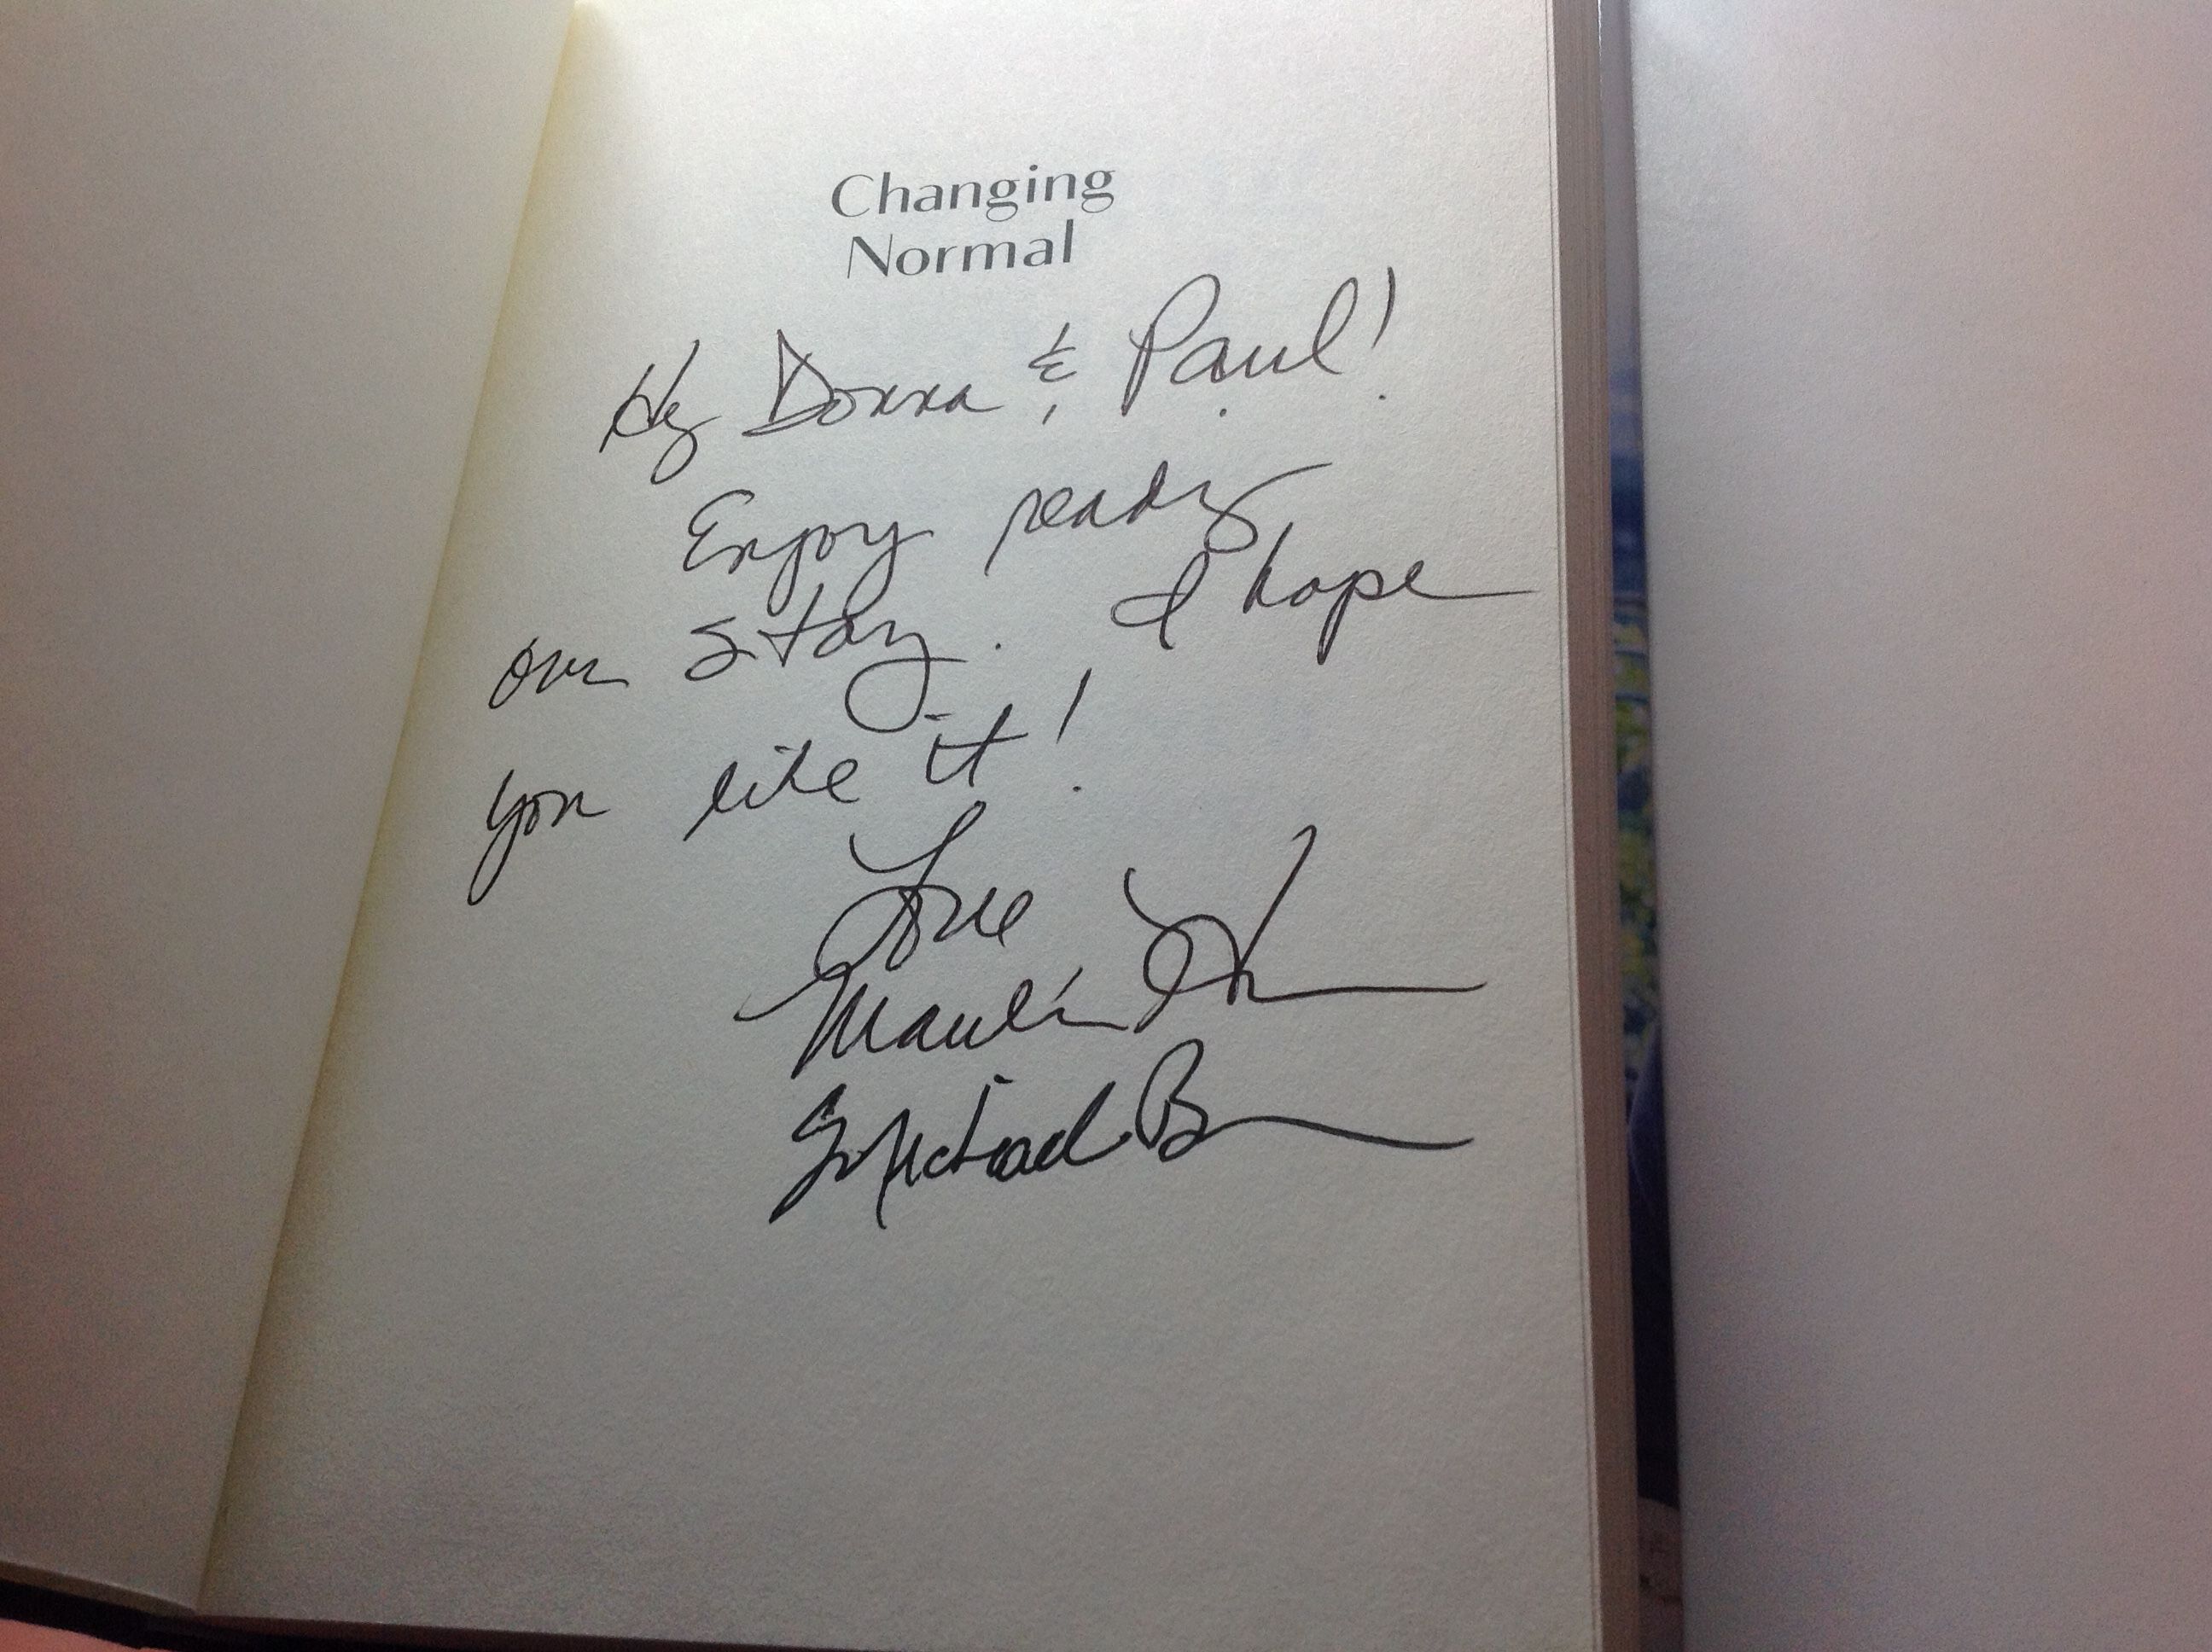 Changing
Normal
Hey Donna & Paul!
Enjoy reading
our stay. I hope
you like it!
Love
Marilu H
& Michael B